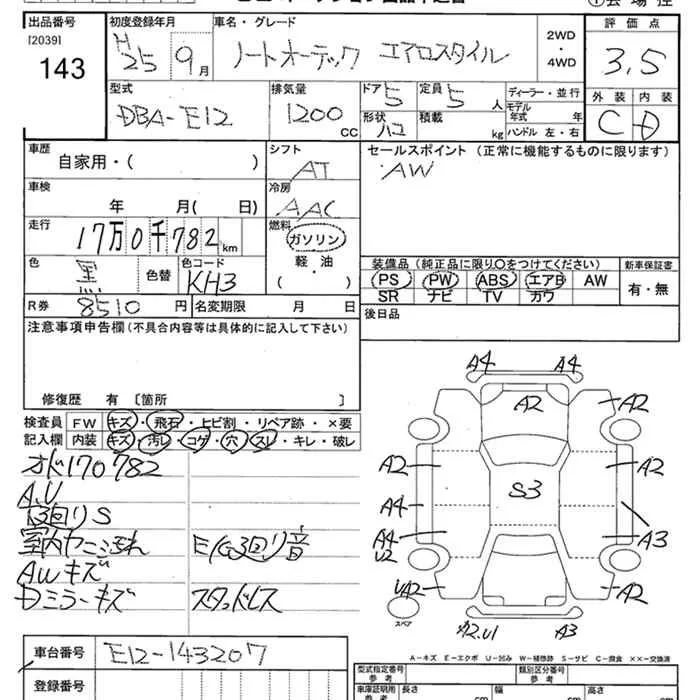 出品番号
[2039]
143
初度登録年月
H
25 9月
車名・グレード
ノートオーテック エアロスタイル
2WD
・
4WD
評価点
3.5
型式
DBA-E12
排気量
1200
CC
ドア
5
定員
5人
形状
ハコ
積載
kg
ディーラー・並行
モデル
年式 年
ハンドル 左・右
外装 内装
C D
車歴
自家用・( )
シフト
AT
セールスポイント (正常に機能するものに限ります)
AW
車検
年 月( 日)
冷房
AAC
走行
17万0千782km
燃料
ガソリン
軽・油
( ・ )
色
黒
色替
色コード
KH3
装備品 (純正品に限り○をつけてください)
PS PW ABS エアB AW
SR ナビ TV カワ
新車保証書
有・無
R券 8510円
名変期限 月 日
後日品
注意事項申告欄(不具合内容等は具体的に記入して下さい)
修復歴 有 〔箇所 〕
検査員
記入欄
FW キズ・飛石・ヒビ割・リペア跡・×要
内装 キズ・汚レ・コゲ・穴・スレ・キレ・破レ
オド170782
A.U
室内ヤニ汚れ
E/G3回り音
AWキズ
Dミラーキズ
スタッドレス
A4 A4
A2 A2
A2 A2
S3
A4
A4 A3
U2
UA2 A2
スペア
A3
A-キズ E-エクボ U-凹み W-補修跡 S-サビ C-腐食 ××-交換済
車台番号
E12-143207
登録番号
型式指定番号
参考
類別区分番号
参考
車庫証明用
参考
長さ cm
幅 cm
高さ cm